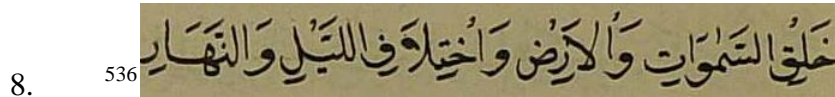 8. 536 خَلْقِ السَّمٰوَاتِ وَالْاَرْضِ وَاخْتِلَافِ اللَّيْلِ وَالنَّهَارِ